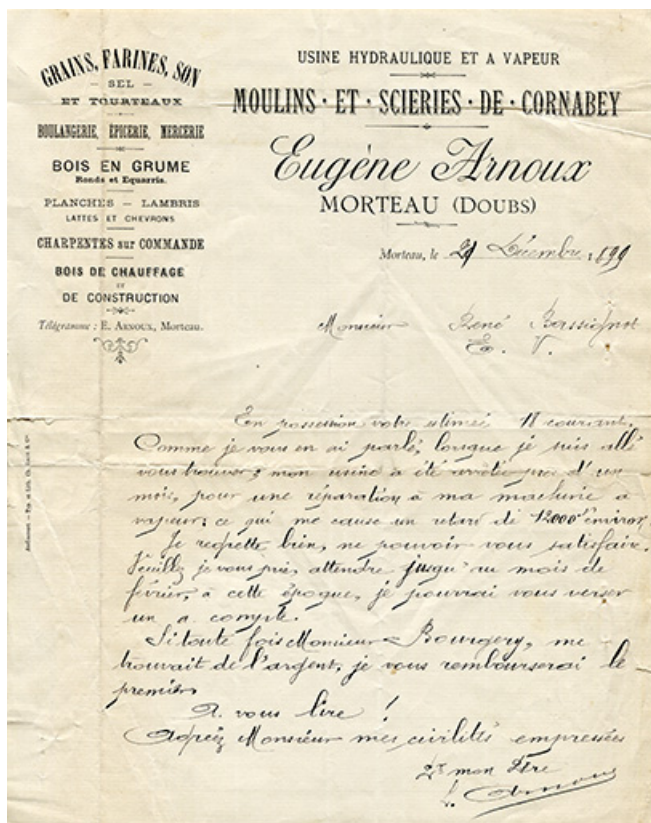 GRAINS, FARINES, SON
— SEL —
ET TOURTEAUX
BOULANGERIE, ÉPICERIE, MERCERIE
BOIS EN GRUME
Ronds et Equarris.
PLANCHES — LAMBRIS
LATTES ET CHEVRONS
CHARPENTES sur COMMANDE
BOIS DE CHAUFFAGE
ET
DE CONSTRUCTION
Télégramme : E. ARNOUX, Morteau.
USINE HYDRAULIQUE ET A VAPEUR
MOULINS · ET · SCIERIES · DE · CORNABEY
Eugène Arnoux
MORTEAU (DOUBS)
Morteau, le 21 Décembre 1899
Monsieur René Bassignot
E. V.
En possession votre estimée 18 courant.
Comme je vous en ai parlé, lorsque je suis allé
vous trouver; mon usine a été arrêtée près d'un
mois, pour une réparation à ma machine à
vapeur; ce qui me cause un retard de 12000f environ.
Je regrette bien, ne pouvoir vous satisfaire.
Veuillez je vous prie, attendre jusqu'au mois de
février, à cette époque, je pourrai vous verser
un a compte.
Si toute fois Monsieur Bourgery, me
trouvait de l'argent, je vous rembourserai le
premier.
A vous lire !
Agréez Monsieur mes civilités empressées
mon Père
Arnoux